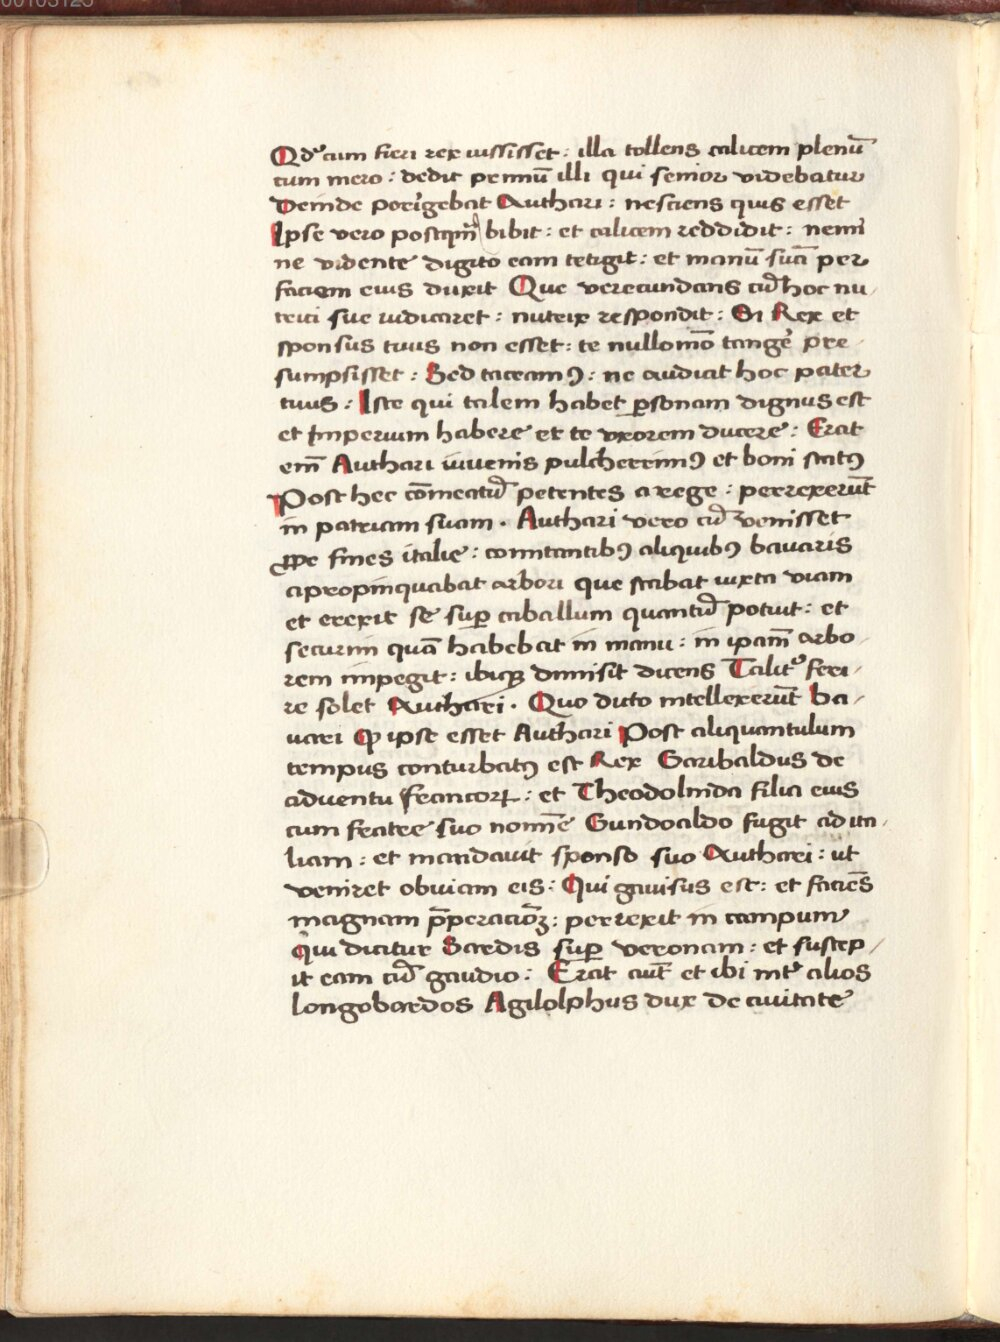 00103123
Qd' cum fieri rex iussisset : illa tollens calicem plenū
cum mero : dedit pernnū illi qui senior videbatur
Deinde porrigebat Authari : nesciens quis esset
Ipse vero postqm̄ bibit : et calicem reddidit : nemi
ne vidente digito eam tetigit : et manū suā per
faciem eius duxit Que verecundans cū hoc nu,
trici sue iudicaret : nutrix respondit : Si Rex et
sponsus tuus non esset : te nullomō tangēr pre
sumpsisset : Sed taceamꝰ : ne audiat hoc pater
tuus : Iste qui talem habet ꝑsonam dignus est
et Imperium habere et te vxorem ducere : Erat
em̄ Authari iuvenis pulcherrimꝰ et boni statꝰ
Post hec cōmeatū petentes a rege : perrexerūt
in patriam suam . Authari vero cū venisset
ꝓpe fines italie : comitantibꝰ aliquibꝰ bavaris
apropinquabat arbori que stabat iuxta viam
et erexit se suꝑ caballum quantū potuit : et
securim quā habebat in manu : in ipam̄ arbo,
rem impegit : ibiqꝫ dimisit dicens Talit' feri,
re solet Authari . Quo dicto intellexerūt ba,
uari ꝙ ipse esset Authari Post aliquantulum
tempus conturbatꝰ est Rex Garibaldus de
adventu francorꝝ : et Theodolinda filia eius
cum fratre suo nomīe Gundoaldo fugit ad ita,
liam : et mandavit sponso suo Authari : ut
veniret obviam eis : Qui gavisus est : et faciēs
magnam p̄peracionꝫ : perrexit in campum
Qui dicitur Sardis suꝑ veronam : et suscep,
it eam cū gaudio : Erat aut̄ et ibi int' alios
longobardos Agilolphus dux de civitate